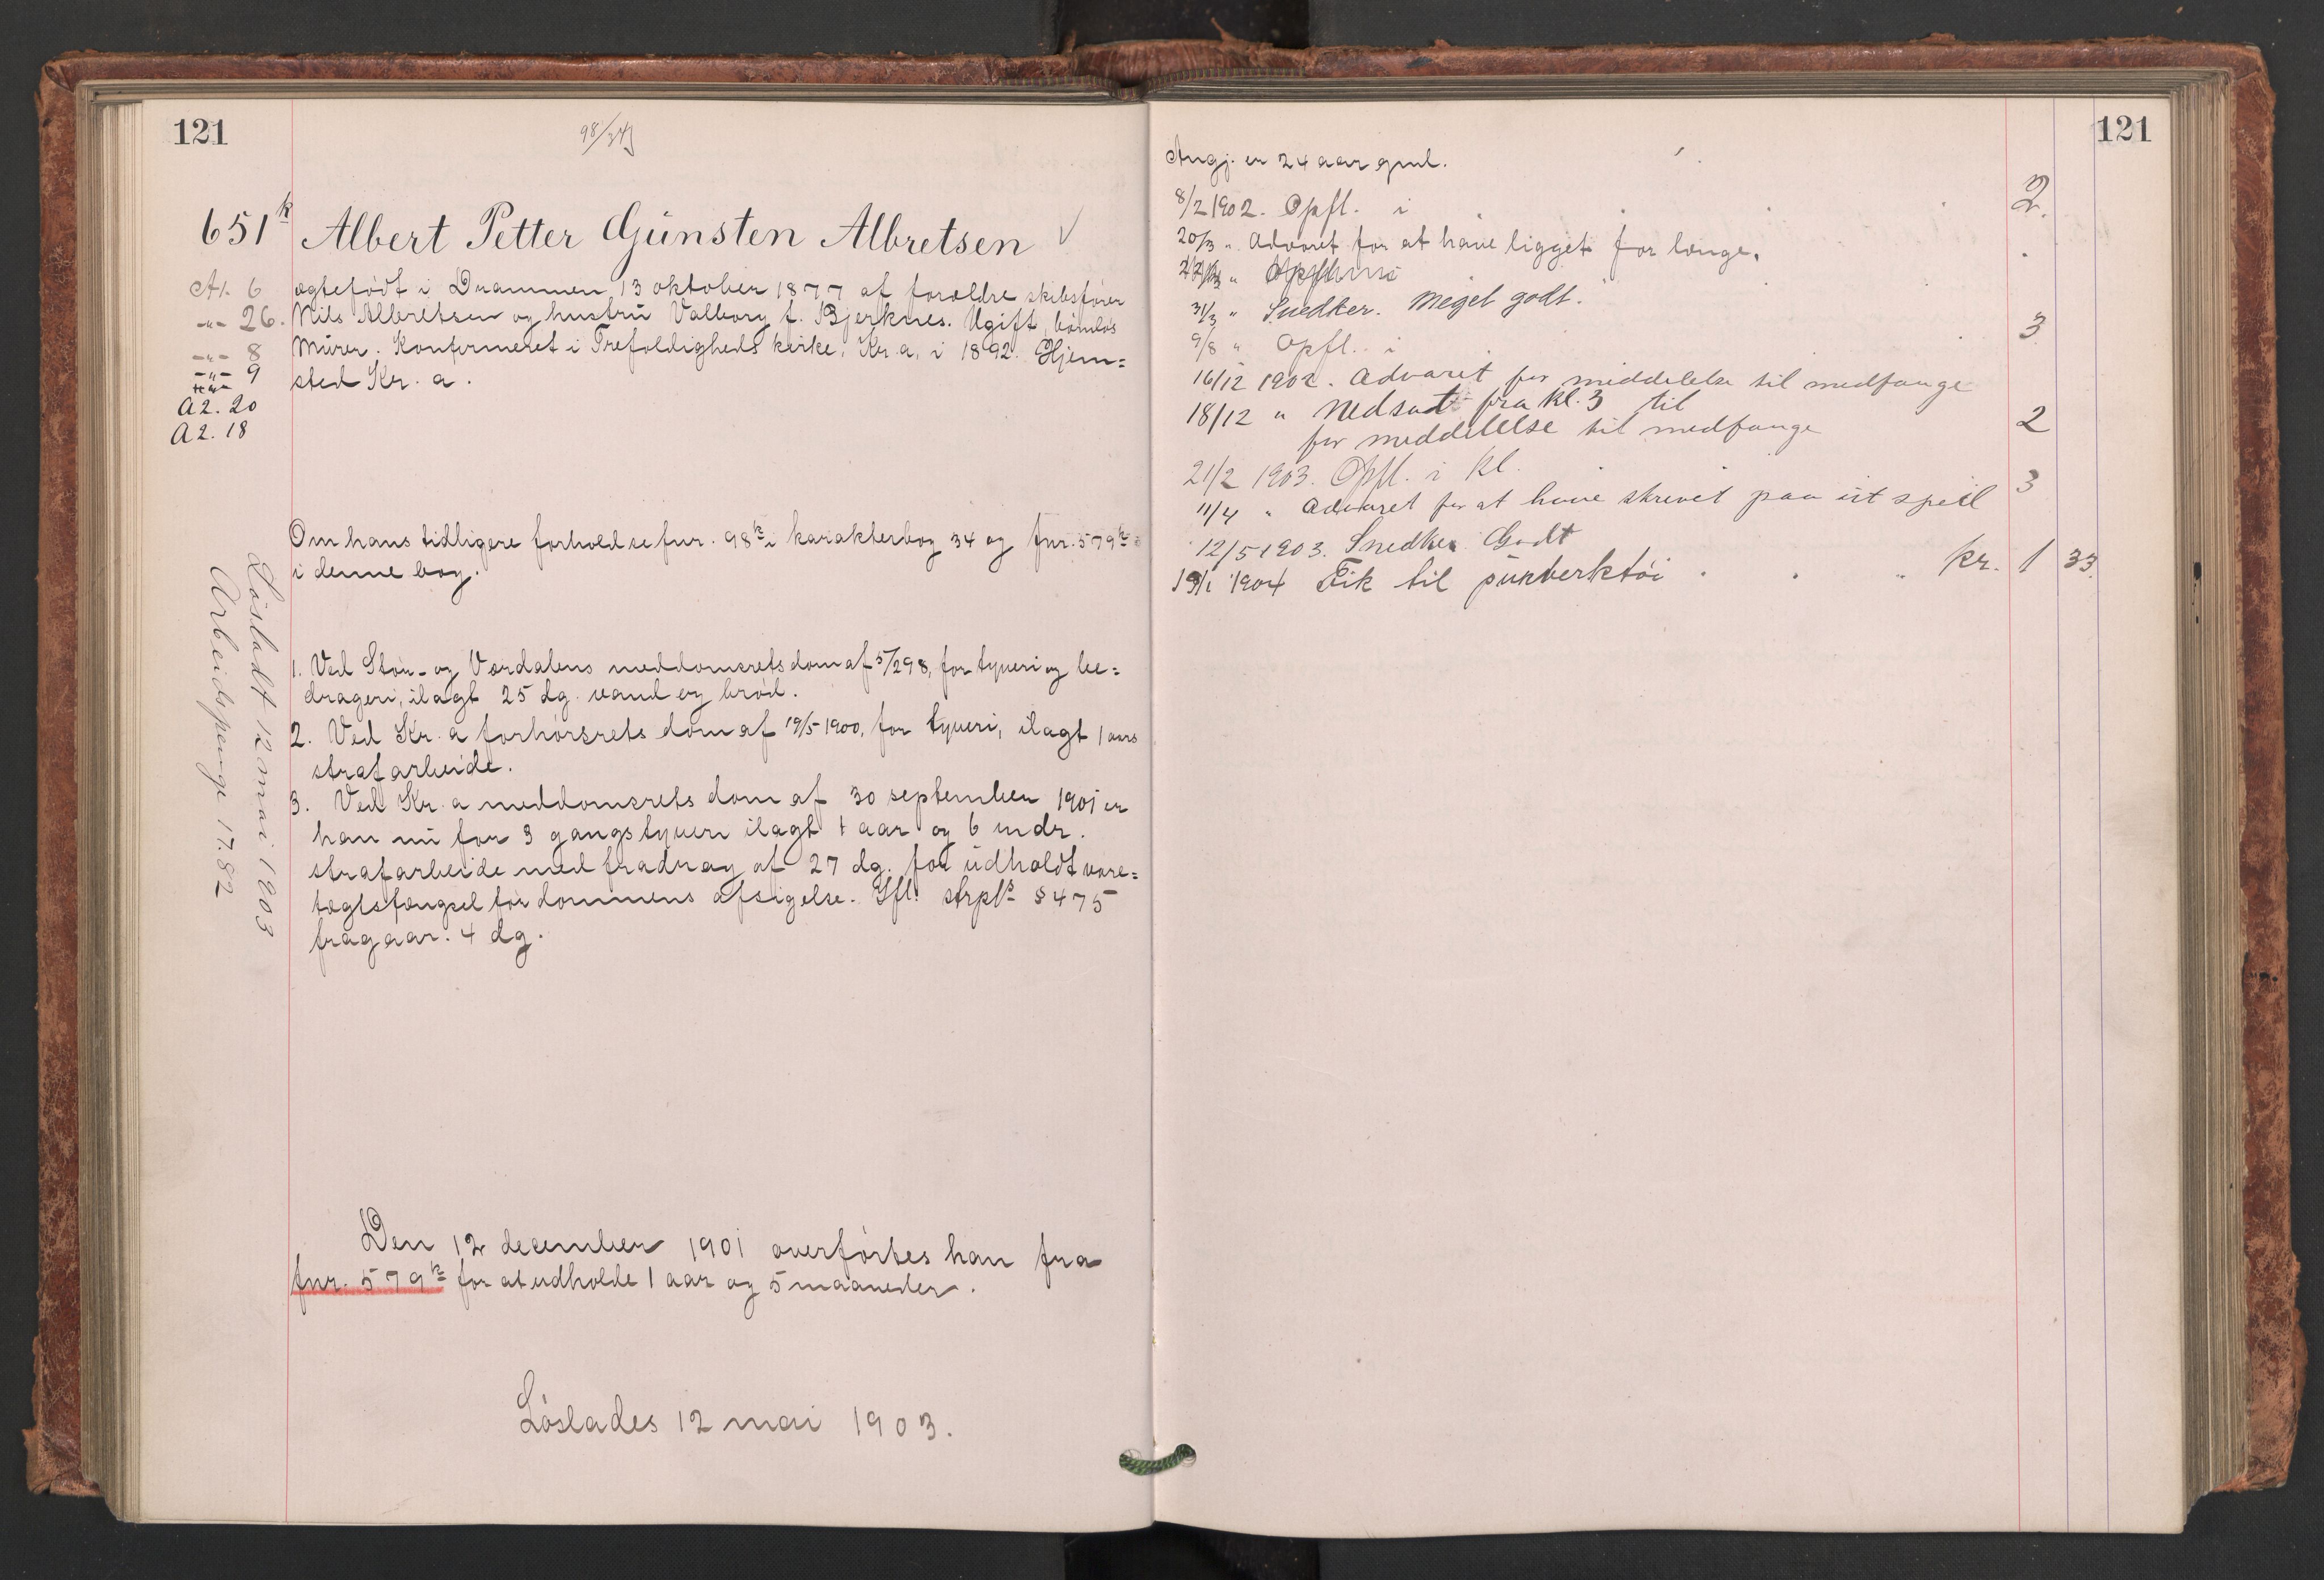 121
98/34
651k Albert Petter Günsten Albretsen
A1. 6
-"- 26.
-"- 8
-"- 9
A2. 20
A2. 18
ægtefødt i Drammen 13 oktober 1877 af forældre skibsfører
Nils Albretsen og hustru Valborg f. Bjerknes. Ugift, barnløs
Murer. Konfirmeret i Trefoldigheds kirke, Kr.a, i 1892. Hjem=
sted Kr.a.
Om hans tidligere forhold se fnr. 98k i karakterbog 34 og fnr. 579k
i denne bog.
1. Ved Stør- og Værdalens meddomsrets dom af 5/2 98, for tyveri og be=
drageri, ilagt 25 dg. vand og brød.
2. Ved Kr.a forhørsrets dom af 19/5 1900, for tyveri, ilagt 1 aars
strafarbeide.
3. Ved Kr.a meddomsrets dom af 30 september 1901 er
han nu for 3 gangs tyveri ilagt 1 aar og 6 mdr.
strafarbeide med fradrag af 27 dg. for udholdt vare=
tægtsfængsel før dommens afsigelse. Ifl. strpl. § 475
fragaar 4 dg.
Løsladt 12 mai 1903
Arbeidspenge 17.82
Den 12 december 1901 overførtes han fra
fnr. 579k for at udholde 1 aar og 5 maaneder.
Løslades 12 mai 1903.
121
Angj. er 24 aar gml.
8/2 1902. Opfl. i 2.
20/3 " Advaret for at have ligget for længe.
31/3 " Snedker. Meget godt.
9/8 " Opfl. i 3
16/12 1902. Advaret for meddelelse til medfange
18/12 " Nedsat fra kl. 3 til 2
for meddelelse til medfange
21/2 1903. Opfl. i kl. 3
11/4 " Advaret for at have skrevet paa sit speil
12/5 1903. Snedker Godt
19/1 1904 Fik til verktøi kr. 1 33.